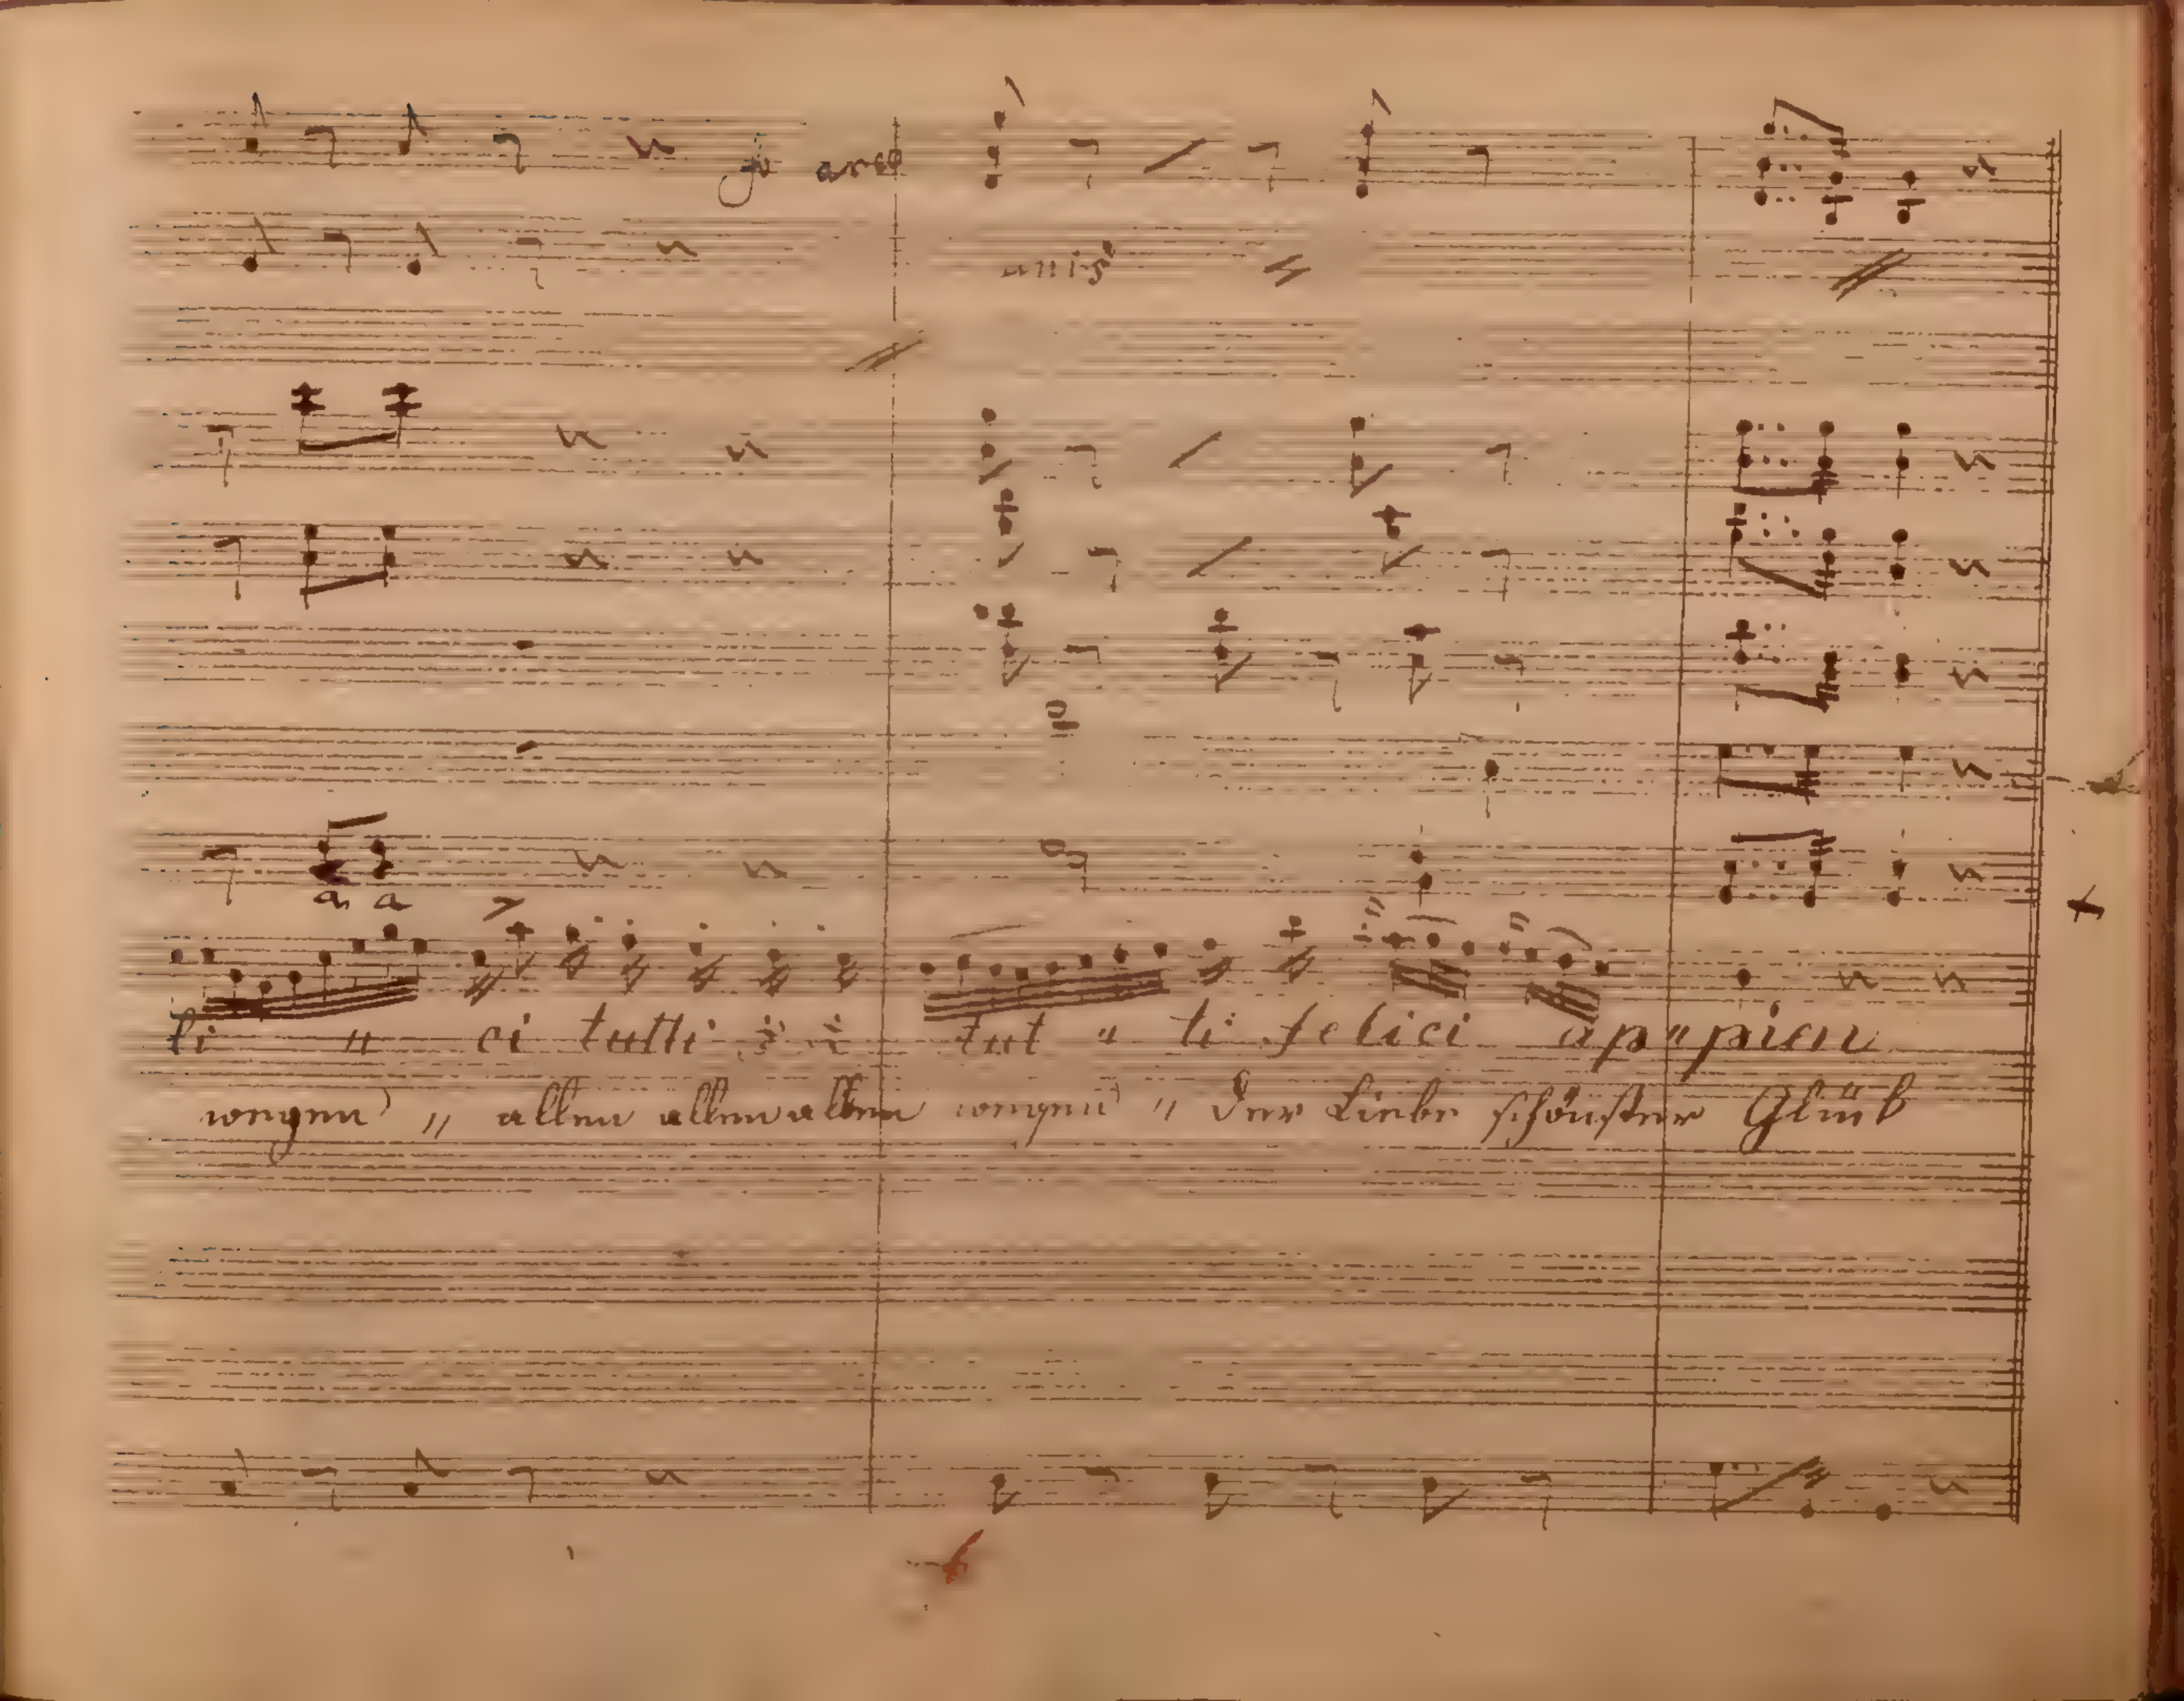 arco
unis
a a
li " ci tutti tut " ti felici ap"pien
wegen " allen allen allen wegen " der Liebe schönster Glük